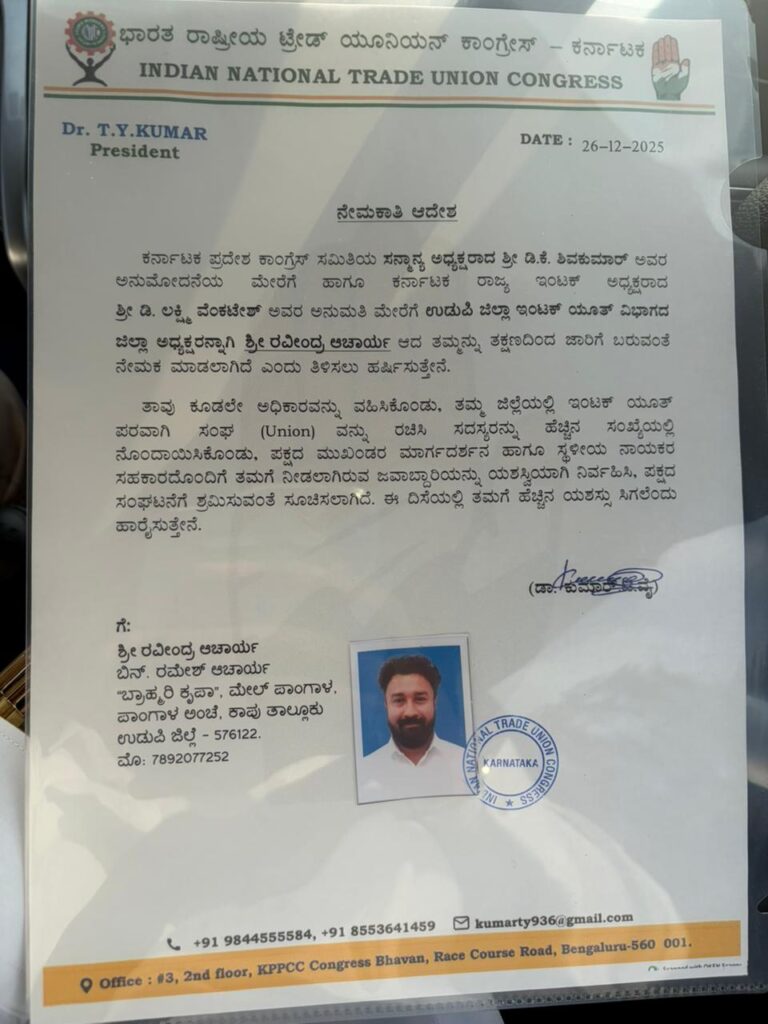 ಭಾರತ ರಾಷ್ಟ್ರೀಯ ಟ್ರೇಡ್ ಯೂನಿಯನ್ ಕಾಂಗ್ರೇಸ್ – ಕರ್ನಾಟಕ
INDIAN NATIONAL TRADE UNION CONGRESS
Dr. T.Y.KUMAR
President
DATE : 26-12-2025
ನೇಮಕಾತಿ ಆದೇಶ
ಕರ್ನಾಟಕ ಪ್ರದೇಶ ಕಾಂಗ್ರೆಸ್ ಸಮಿತಿಯ ಸನ್ಮಾನ್ಯ ಅಧ್ಯಕ್ಷರಾದ ಶ್ರೀ ಡಿ.ಕೆ. ಶಿವಕುಮಾರ್ ಅವರ
ಅನುಮೋದನೆಯ ಮೇರೆಗೆ ಹಾಗೂ ಕರ್ನಾಟಕ ರಾಜ್ಯ ಇಂಟಕ್ ಅಧ್ಯಕ್ಷರಾದ
ಶ್ರೀ ಡಿ. ಲಕ್ಷ್ಮಿ ವೆಂಕಟೇಶ್ ಅವರ ಅನುಮತಿ ಮೇರೆಗೆ ಉಡುಪಿ ಜಿಲ್ಲಾ ಇಂಟಕ್ ಯೂತ್ ವಿಭಾಗದ
ಜಿಲ್ಲಾ ಅಧ್ಯಕ್ಷರನ್ನಾಗಿ ಶ್ರೀ ರವೀಂದ್ರ ಆಚಾರ್ಯ ಆದ ತಮ್ಮನ್ನು ತಕ್ಷಣದಿಂದ ಜಾರಿಗೆ ಬರುವಂತೆ
ನೇಮಕ ಮಾಡಲಾಗಿದೆ ಎಂದು ತಿಳಿಸಲು ಹರ್ಷಿಸುತ್ತೇನೆ.
ತಾವು ಕೂಡಲೇ ಅಧಿಕಾರವನ್ನು ವಹಿಸಿಕೊಂಡು, ತಮ್ಮ ಜಿಲ್ಲೆಯಲ್ಲಿ ಇಂಟಕ್ ಯೂತ್
ಪರವಾಗಿ ಸಂಘ (Union) ವನ್ನು ರಚಿಸಿ ಸದಸ್ಯರನ್ನು ಹೆಚ್ಚಿನ ಸಂಖ್ಯೆಯಲ್ಲಿ
ನೊಂದಾಯಿಸಿಕೊಂಡು, ಪಕ್ಷದ ಮುಖಂಡರ ಮಾರ್ಗದರ್ಶನ ಹಾಗೂ ಸ್ಥಳೀಯ ನಾಯಕರ
ಸಹಕಾರದೊಂದಿಗೆ ತಮಗೆ ನೀಡಲಾಗಿರುವ ಜವಾಬ್ದಾರಿಯನ್ನು ಯಶಸ್ವಿಯಾಗಿ ನಿರ್ವಹಿಸಿ, ಪಕ್ಷದ
ಸಂಘಟನೆಗೆ ಶ್ರಮಿಸುವಂತೆ ಸೂಚಿಸಲಾಗಿದೆ. ಈ ದಿಸೆಯಲ್ಲಿ ತಮಗೆ ಹೆಚ್ಚಿನ ಯಶಸ್ಸು ಸಿಗಲೆಂದು
ಹಾರೈಸುತ್ತೇನೆ.
(ಡಾ. ಕುಮಾರ್ ಟಿ.ವೈ)
ಗೆ:
ಶ್ರೀ ರವೀಂದ್ರ ಆಚಾರ್ಯ
ಬಿನ್. ರಮೇಶ್ ಆಚಾರ್ಯ
"ಬ್ರಾಹ್ಮರಿ ಕೃಪಾ", ಮೇಲ್ ಪಾಂಗಾಳ,
ಪಾಂಗಾಳ ಅಂಚೆ, ಕಾಪು ತಾಲ್ಲೂಕು
ಉಡುಪಿ ಜಿಲ್ಲೆ - 576122.
ಮೊ: 7892077252
INDIAN NATIONAL TRADE UNION CONGRESS
KARNATAKA
+91 9844555584, +91 8553641459 kumarty936@gmail.com
Office : #3, 2nd floor, KPPCC Congress Bhavan, Race Course Road, Bengaluru-560 001.